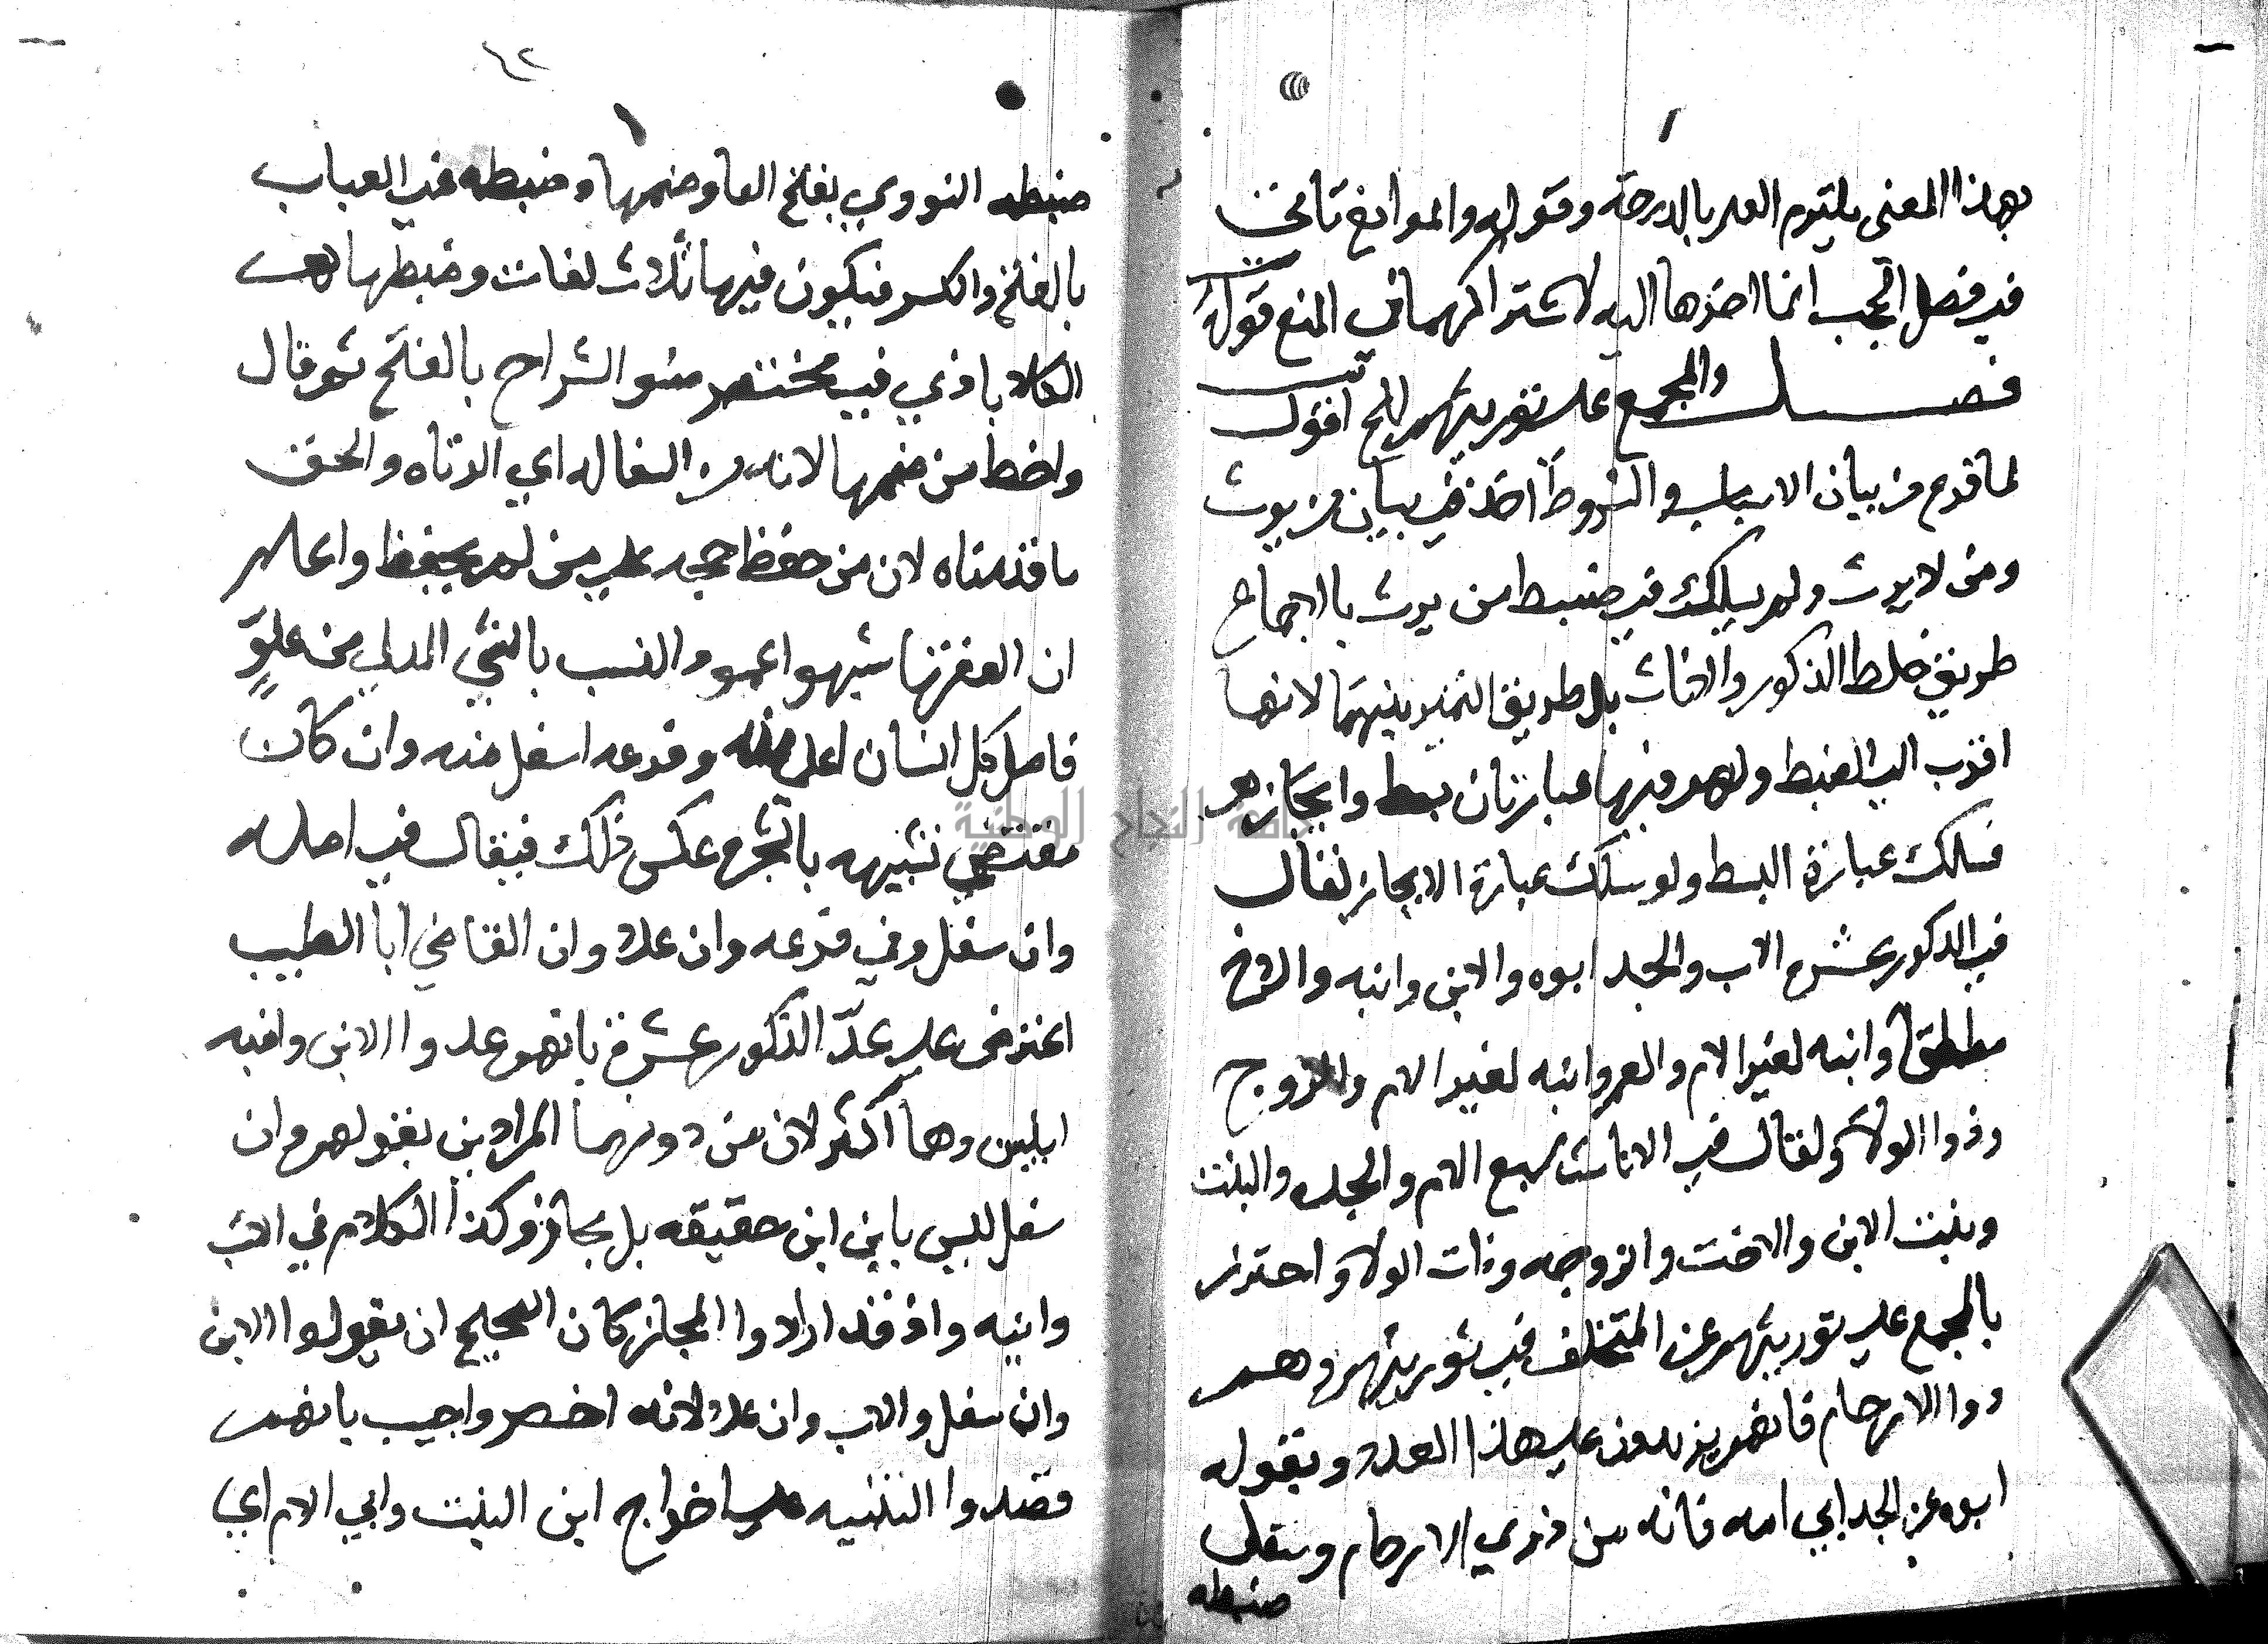 بهذا المعنى يلتزم العد بالدرجة وقوله والموانع تأتي
في فصل الحجب انما اخرها اليه لاشتراكهما في المنع قوله
فصل والمجمع على توريثهم الخ اقول
لما قدم من بيان الاسباب والشروط اخذ في بيان من يرث
ومن لا يرث ولم يسلك في ضبط من يرث بالاجماع
طريق خلط الذكور والاناث بل طريق التمييز بينهما لانها
اقرب الى الضبط ولهم فيها عبارتان بسط وايجاز هو
فسلك عبارة البسط ولو سلك عبارة الايجاز لقال
في الذكور عشرة الاب والجد ابوه والابن وابنه والاخ
مطلقا وابنه لغير الام والعم وابنه لغير الام والزوج
وذوا الولاء ولقال في الاناث سبع الام والجده والبنت
وبنت الابن والاخت والزوجه وذات الولاء واحترز
بالمجمع على توريثهم عن المختلف في توريثهم وهم
ذوا الارحام فانهم يزيدون على هذا العدد وبقوله
ابوه عن الجد ابي امه فانه من ذوي الارحام وسفل
ضبطه
٦٢
ضبطه النووي بفتح الفا وضمها وضبطه في العباب
بالفتح والكسر فيكون فيها ثلاث لغات وضبطها
الكلاباذي في مختصر ضوء السراج بالفتح ثم قال
واخطا من ضمها لانه من السفاله اي الدناه والحق
ما قدمناه لان من حفظ حجه على من لم يحفظ واعلم
ان الفقها شبهوا عمود النسب بالشئ المدلى من علوّ
فاصل كل انسان اعلى منه وفرعه اسفل منه وان كان
مقتضى تشبيهه بالشجرة عكس ذلك فيقال في اصله
وان سفل وفي فرعه وان علا وان القاضي ابا الطيب
اعترض على عدّ الذكور عشرة بانهم عدوا الابن وابنه
ابنين وهما اكثر لان من دونهما المراد من بقولهم وان
سفل ليس بابن ابن حقيقه بل مجاز وكذا الكلام في الاب
وابيه واذ قد ارادوا المجاز كان الصحيح ان يقولوا الابن
وان سفل والاب وان علا لانه اخصر واجيب بانهم
قصدوا التنبيه على اخراج ابن البنت وابي الام اي
جامعة النجاح الوطنية